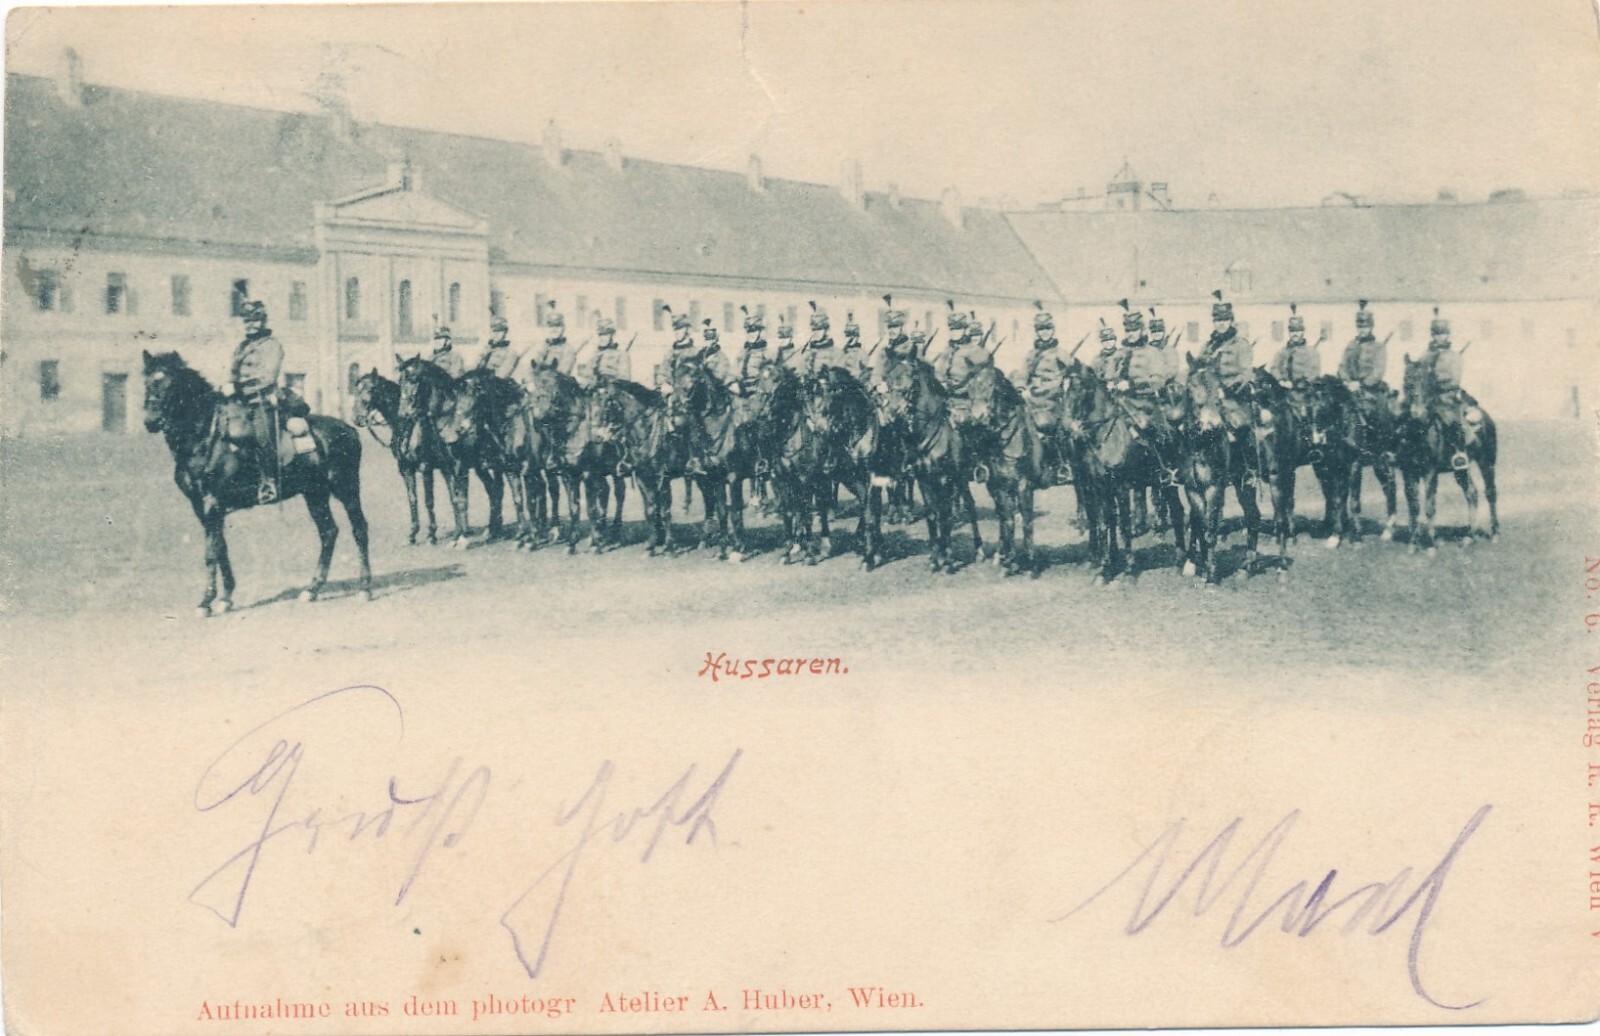 Hussaren.
Gruß Gott
Aufnahme aus dem photogr Atelier A. Huber, Wien.
No. 6. Verlag R. R. Wien V